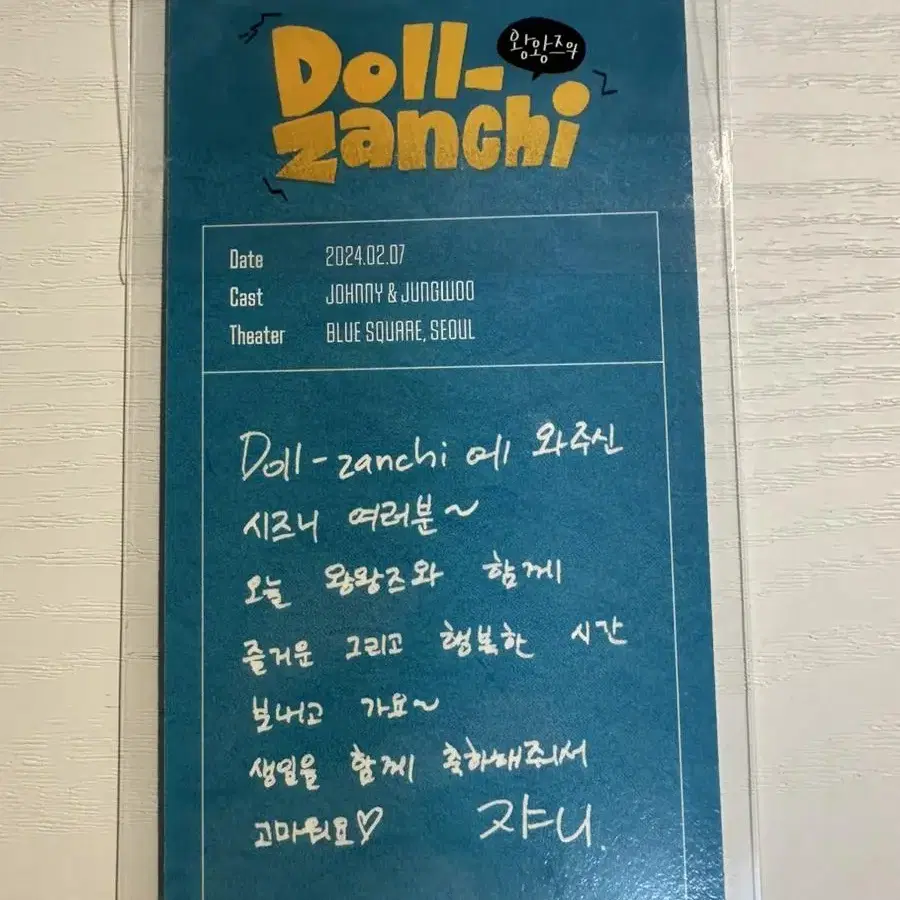 왕왕즈의
Doll-
zanchi
Date 2024.02.07
Cast JOHNNY & JUNGWOO
Theater BLUE SQUARE, SEOUL
Doll-zanchi에 와주신
시즈니 여러분~
오늘 왕왕즈와 함께
즐거운 그리고 행복한 시간
보내고 가요~
생일을 함께 축하해주셔서
고마워요♡ 쟈니